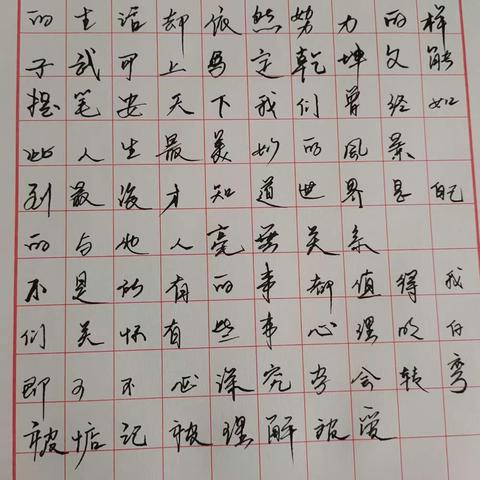 的生活却依然努力的样
子武可上马定乾坤文能
提笔安天下我们曾经如
此人生最美妙的风景
到最后才知道世界是自己
的与他人毫无关系
不是所有的事都值得我
们关怀有些事心理明白
即可不必深究学会转弯
被惦记被理解被爱